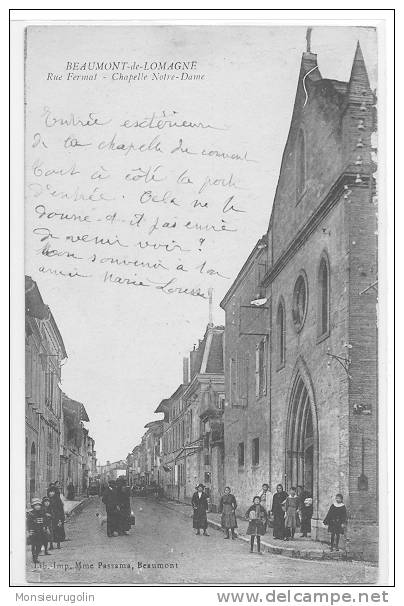 BEAUMONT-de-LOMAGNE
Rue Fermat - Chapelle Notre-Dame
Entrée extérieure
de la chapelle du couvent
tout à côté la porte
d'entrée. Cela ne te
donne-t-il pas envie
de venir voir ?
bon souvenir à ton
amie Marie Louise
Lib.-Imp. Mme Passama, Beaumont
http://monsieurugolin.delcampe.net